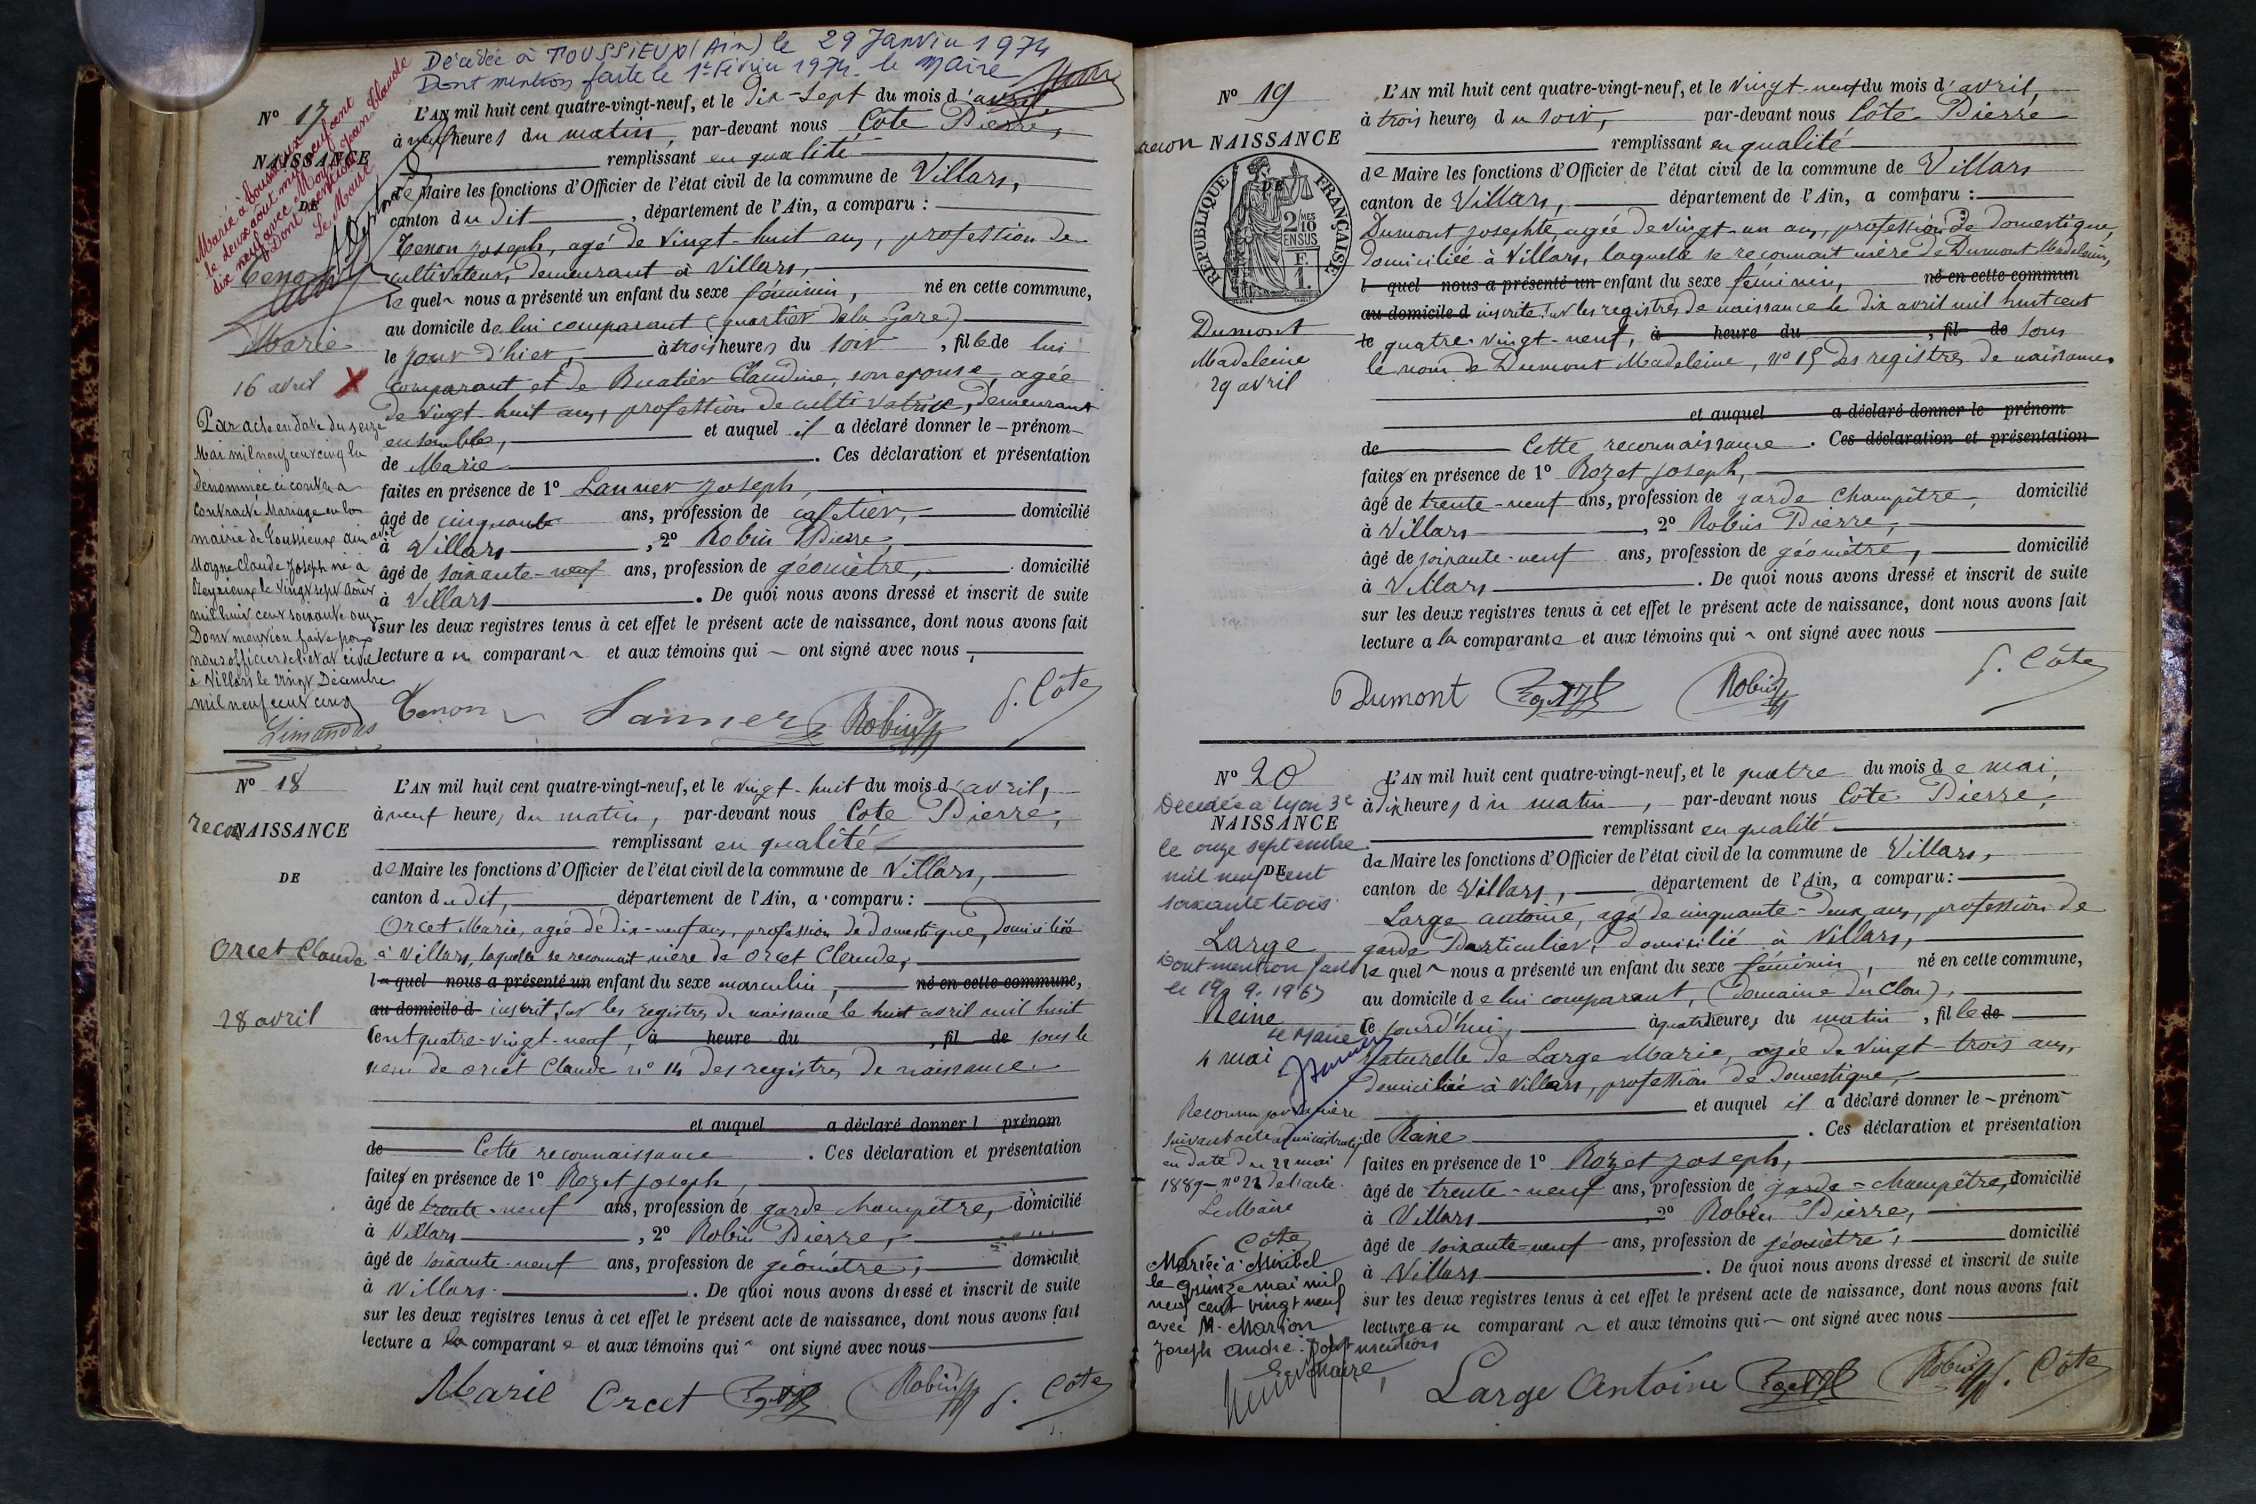 Décédée à TOUSSIEUX (Ain) le 29 Janvier 1974
Dont mention faite le 1er Février 1974. le Maire
N° 17
Mariée à Toussieux
le deux aout mil neuf cent
dix neuf avec Moyne Jean Claude
Dont mention
Le Maire
NAISSANCE
DE
Tenon
Marie
16 avril X
Par acte en date du seize
Mai mil neuf cent cinq la
dénommée ci contre a
Contracté Mariage en la
mairie de Toussieux Ain avec
Moyne Claude Joseph né à
Reyrieux le vingt sept Août
mil huit cent soixante onze
Dont mention faite par
nous officier de l'état civil
à Villars le vingt Décembre
mil neuf cent cinq
Limandas
L'AN mil huit cent quatre-vingt-neuf, et le dix-sept du mois d'avril
à neuf heures du matin, par-devant nous Côte Pierre,
remplissant en qualité
de Maire les fonctions d'Officier de l'état civil de la commune de Villars,
canton du dit, département de l'Ain, a comparu :
Tenon Joseph, agé de vingt-huit ans, profession de
cultivateur, demeurant à Villars,
le quel nous a présenté un enfant du sexe féminin, né en cette commune,
au domicile de lui comparant (quartier de la Gare)
le jour d'hier, à trois heures du soir, fille de lui
comparant et de Buatier Claudine, son epouse, agée
de vingt-huit ans, profession de cultivatrice, demeurant
ensembles, et auquel il a déclaré donner le prénom
de Marie. Ces déclaration et présentation
faites en présence de 1° Lanner Joseph,
âgé de cinquante ans, profession de cafetier, domicilié
à Villars, 2° Robin Pierre,
âgé de soixante-neuf ans, profession de géomètre, domicilié
à Villars. De quoi nous avons dressé et inscrit de suite
sur les deux registres tenus à cet effet le présent acte de naissance, dont nous avons fait
lecture au comparant et aux témoins qui ont signé avec nous,
Tenon Lanner Robin P. Côte
N° 18
recon NAISSANCE
DE
Orcet Claude
28 avril
L'AN mil huit cent quatre-vingt-neuf, et le vingt-huit du mois d'avril,
à neuf heures du matin, par-devant nous Côte Pierre,
remplissant en qualité
de Maire les fonctions d'Officier de l'état civil de la commune de Villars,
canton du dit, département de l'Ain, a comparu :
Orcet Marie, agée de dix-neuf ans, profession de domestique, domiciliée
à Villars, laquelle se reconnait mère de Orcet Claude,
l quel nous a présenté un enfant du sexe masculin, né en cette commune,
au domicile d inscrit sur les registres de naissance le huit avril mil huit
cent quatre-vingt-neuf, à heure du, fil de sous le
nom de Orcet Claude n° 14 des registres de naissance
et auquel a déclaré donner l prénom
de Cette reconnaissance. Ces déclaration et présentation
faites en présence de 1° Rozet Joseph,
âgé de trente-neuf ans, profession de garde champêtre, domicilié
à Villars, 2° Robin Pierre,
âgé de soixante-neuf ans, profession de géomètre, domicilié
à Villars. De quoi nous avons dressé et inscrit de suite
sur les deux registres tenus à cet effet le présent acte de naissance, dont nous avons fait
lecture a la comparante et aux témoins qui ont signé avec nous
Marie Orcet Rozet Robin P. Côte
N° 19
recon NAISSANCE
DE
RÉPUBLIQUE FRANÇAISE
2 MES 10
EN SUS
F.
1.
Dumont
Madeleine
29 avril
L'AN mil huit cent quatre-vingt-neuf, et le vingt-neuf du mois d'avril,
à trois heures du soir, par-devant nous Côte Pierre
remplissant en qualité
de Maire les fonctions d'Officier de l'état civil de la commune de Villars
canton de Villars, département de l'Ain, a comparu :
Dumont Josephte, agée de vingt-un ans, profession de domestique,
domiciliée à Villars, laquelle se reconnait mère de Dumont Madeleine,
l quel nous a présenté un enfant du sexe féminin, né en cette commun
au domicile d inscrite sur les registres de naissance le dix avril mil huit cent
le quatre-vingt-neuf, à heure du, fil de sous
le nom de Dumont Madeleine, n° 15 des registres de naissances
et auquel a déclaré donner le prénom
de Cette reconnaissance. Ces déclaration et présentation
faites en présence de 1° Rozet Joseph,
âgé de trente-neuf ans, profession de garde champêtre, domicilié
à Villars, 2° Robin Pierre,
âgé de soixante-neuf ans, profession de géomètre, domicilié
à Villars. De quoi nous avons dressé et inscrit de suite
sur les deux registres tenus à cet effet le présent acte de naissance, dont nous avons fait
lecture a la comparante et aux témoins qui ont signé avec nous
Dumont Rozet Robin P. Côte
N° 20
Décédée à Lyon 3e
NAISSANCE
le onze septembre
DE
mil neuf cent
soixante trois
Large
Dont mention faite
le 19. 9. 1963
Reine
Le Maire
4 mai
Reconnu par sa mère
suivant acte administratif
en date du 22 mai
1889 - n° 22 de l'acte.
Le Maire
Côte
Mariée à Miribel
le quinze mai mil
neuf cent vingt neuf
avec M. Marion
Joseph André. Dont mention
Le Maire,
L'AN mil huit cent quatre-vingt-neuf, et le quatre du mois de mai,
à dix heures du matin, par-devant nous Côte Pierre,
remplissant en qualité
de Maire les fonctions d'Officier de l'état civil de la commune de Villars,
canton de Villars, département de l'Ain, a comparu :
Large Antoine, agé de cinquante-deux ans, profession de
garde Particulier, domicilié à Villars,
le quel nous a présenté un enfant du sexe féminin, né en cette commune,
au domicile de lui comparant, (Domaine du Clou),
le jourd'hui, à quatre heures du matin, fille de
naturelle de Large Marie, agée de vingt-trois ans,
domiciliée à Villars, profession de domestique,
et auquel il a déclaré donner le prénom
de Reine. Ces déclaration et présentation
faites en présence de 1° Rozet Joseph,
âgé de trente-neuf ans, profession de garde-champêtre, domicilié
à Villars, 2° Robin Pierre,
âgé de soixante-neuf ans, profession de géomètre, domicilié
à Villars. De quoi nous avons dressé et inscrit de suite
sur les deux registres tenus à cet effet le présent acte de naissance, dont nous avons fait
lecture au comparant et aux témoins qui ont signé avec nous
Large Antoine Rozet Robin P. Côte